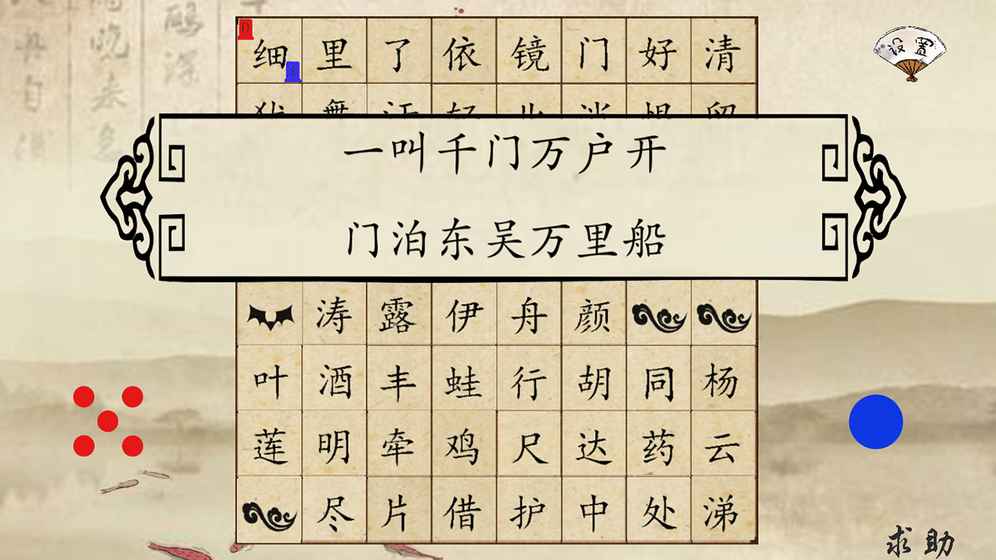 细里了依镜门好清
设置
一叫千门万户开
门泊东吴万里船
涛露伊舟颜
叶酒丰蛙行胡同杨
莲明牵鸡尺达药云
尽片借护中处涕
求助